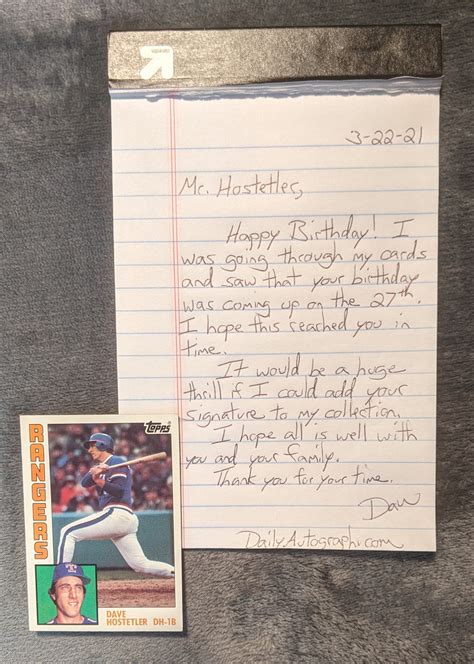 3-22-21
Mr. Hostetler,
Happy Birthday! I
was going through my cards
and saw that your birthday
was coming up on the 27th.
I hope this reached you in
time.
It would be a huge
thrill if I could add your
signature to my collection.
I hope all is well with
you and your family.
Thank you for your time.
Dave
DailyAutograph.com
Topps
RANGERS
DAVE
HOSTETLER DH-1B